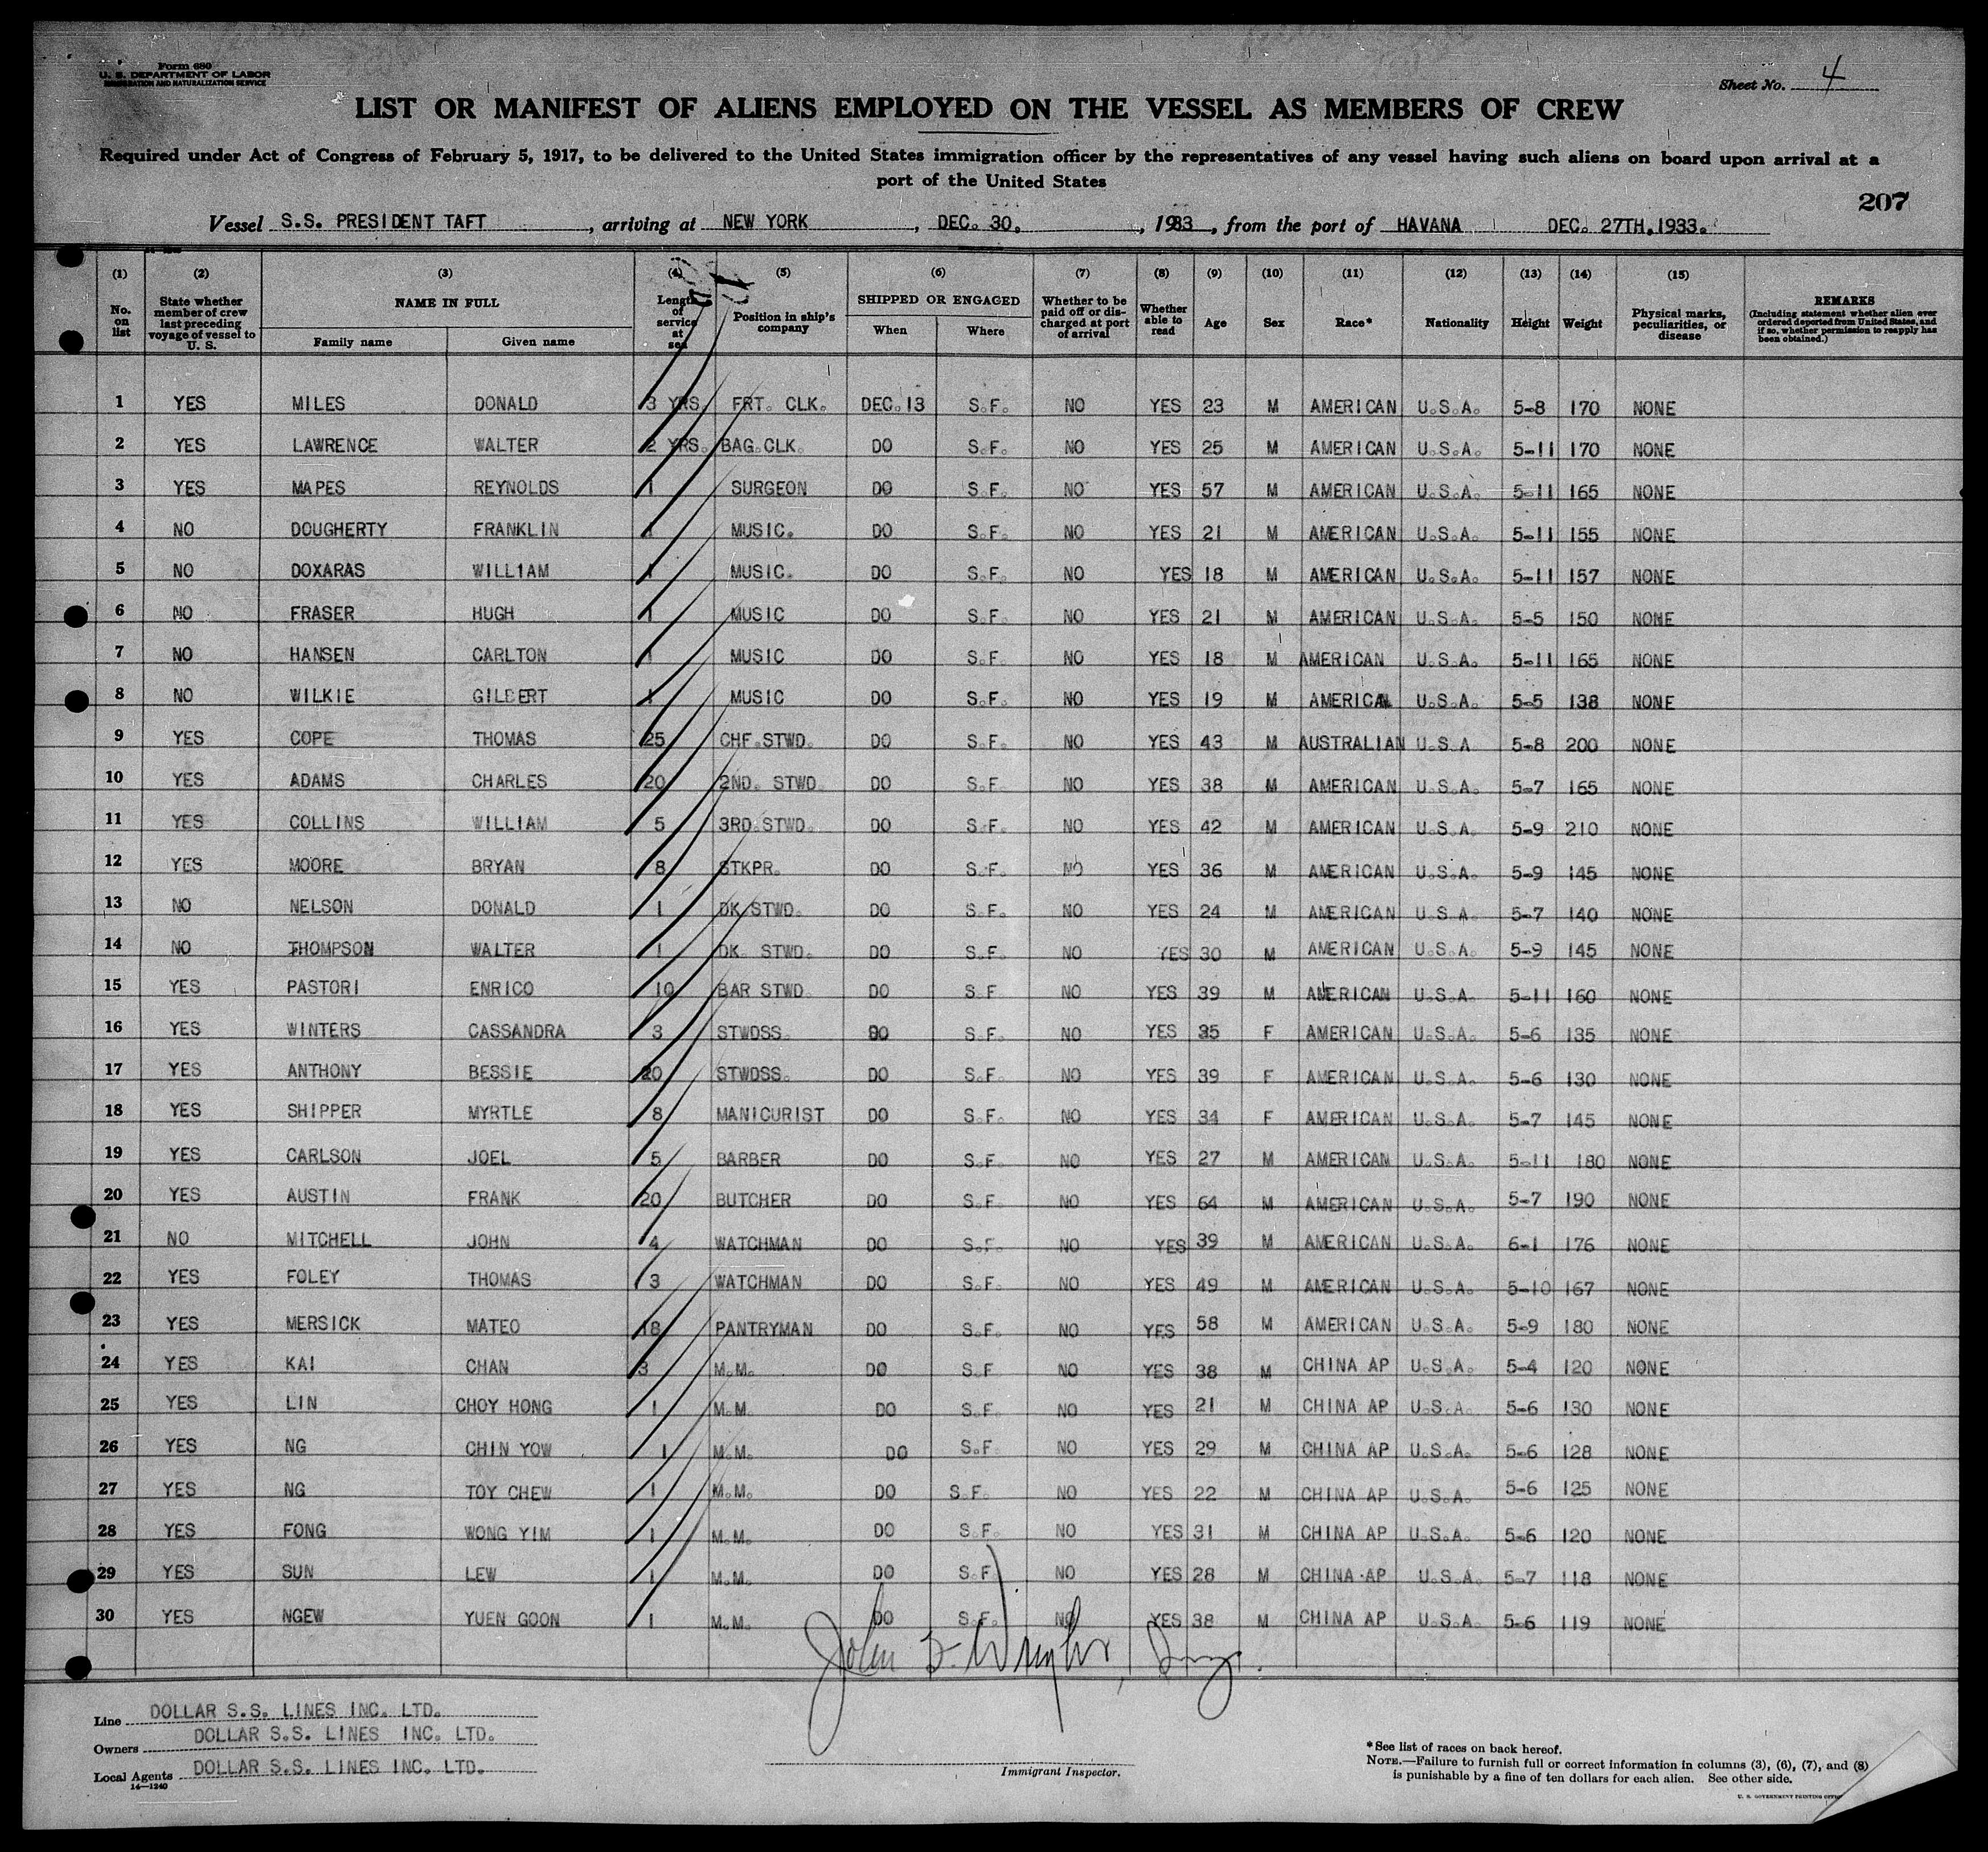 Form 680
U. S. DEPARTMENT OF LABOR
IMMIGRATION AND NATURALIZATION SERVICE
Sheet No. 4
LIST OR MANIFEST OF ALIENS EMPLOYED ON THE VESSEL AS MEMBERS OF CREW
Required under Act of Congress of February 5, 1917, to be delivered to the United States immigration officer by the representatives of any vessel having such aliens on board upon arrival at a
port of the United States
207
Vessel S.S. PRESIDENT TAFT, arriving at NEW YORK, DEC. 30, 1933, from the port of HAVANA DEC. 27TH, 1933.
(1) (2) (3) (4) (5) (6) (7) (8) (9) (10) (11) (12) (13) (14) (15)
No. on list State whether member of crew last preceding voyage of vessel to U. S. NAME IN FULL Family name Given name Length of service at sea Position in ship's company SHIPPED OR ENGAGED When Where Whether to be paid off or discharged at port of arrival Whether able to read Age Sex Race* Nationality Height Weight Physical marks, peculiarities, or disease REMARKS (Including statement whether alien ever ordered deported from United States, and if so, whether permission to reapply has been obtained.)
1 YES MILES DONALD 3 YRS. FRT. CLK. DEC. 13 S.F. NO YES 23 M AMERICAN U.S.A. 5-8 170 NONE
2 YES LAWRENCE WALTER 2 YRS. BAG.CLK. DO S.F. NO YES 25 M AMERICAN U.S.A. 5-11 170 NONE
3 YES MAPES REYNOLDS 1 SURGEON DO S.F. NO YES 57 M AMERICAN U.S.A. 5-11 165 NONE
4 NO DOUGHERTY FRANKLIN 1 MUSIC. DO S.F. NO YES 21 M AMERICAN U.S.A. 5-11 155 NONE
5 NO DOXARAS WILL1AM 1 MUSIC. DO S.F. NO YES 18 M AMERICAN U.S.A. 5-11 157 NONE
6 NO FRASER HUGH 1 MUSIC DO S.F. NO YES 21 M AMERICAN U.S.A. 5-5 150 NONE
7 NO HANSEN CARLTON 1 MUSIC DO S.F. NO YES 18 M AMERICAN U.S.A. 5-11 165 NONE
8 NO WILKIE GILBERT 1 MUSIC DO S.F. NO YES 19 M AMERICAN U.S.A. 5-5 138 NONE
9 YES COPE THOMAS 25 CHF.STWD. DO S.F. NO YES 43 M AUSTRALIAN U.S.A 5-8 200 NONE
10 YES ADAMS CHARLES 20 2ND. STWD. DO S.F. NO YES 38 M AMERICAN U.S.A. 5-7 165 NONE
11 YES COLLINS WILLIAM 5 3RD.STWD. DO S.F. NO YES 42 M AMERICAN U.S.A. 5-9 210 NONE
12 YES MOORE BRYAN 8 STKPR. DO S.F. NO YES 36 M AMERICAN U.S.A. 5-9 145 NONE
13 NO NELSON DONALD 1 DK STWD. DO S.F. NO YES 24 M AMERICAN U.S.A. 5-7 140 NONE
14 NO THOMPSON WALTER 1 DK. STWD. DO S.F. NO YES 30 M AMERICAN U.S.A. 5-9 145 NONE
15 YES PASTORI ENRICO 10 BAR STWD. DO S.F. NO YES 39 M AMERICAN U.S.A. 5-11 160 NONE
16 YES WINTERS CASSANDRA 3 STWDSS. DO S.F. NO YES 35 F AMERICAN U.S.A. 5-6 135 NONE
17 YES ANTHONY BESSIE 20 STWDSS. DO S.F. NO YES 39 F AMERICAN U.S.A. 5-6 130 NONE
18 YES SHIPPER MYRTLE 8 MANICURIST DO S.F. NO YES 34 F AMERICAN U.S.A. 5-7 145 NONE
19 YES CARLSON JOEL 5 BARBER DO S.F. NO YES 27 M AMERICAN U.S.A. 5-11 180 NONE
20 YES AUSTIN FRANK 20 BUTCHER DO S.F. NO YES 64 M AMERICAN U.S.A. 5-7 190 NONE
21 NO MITCHELL JOHN 4 WATCHMAN DO S.F. NO YES 39 M AMERICAN U.S.A. 6-1 176 NONE
22 YES FOLEY THOMAS 3 WATCHMAN DO S.F. NO YES 49 M AMERICAN U.S.A. 5-10 167 NONE
23 YES MERSICK MATEO 18 PANTRYMAN DO S.F. NO YES 58 M AMERICAN U.S.A. 5-9 180 NONE
24 YES KAI CHAN 3 M.M. DO S.F. NO YES 38 M CHINA AP U.S.A. 5-4 120 NONE
25 YES LIN CHOY HONG 1 M.M. DO S.F. NO YES 21 M CHINA AP U.S.A. 5-6 130 NONE
26 YES NG CHIN YOW 1 M.M. DO S.F. NO YES 29 M CHINA AP U.S.A. 5-6 128 NONE
27 YES NG TOY CHEW 1 M.M. DO S.F. NO YES 22 M CHINA AP U.S.A. 5-6 125 NONE
28 YES FONG WONG YIM 1 M.M. DO S.F. NO YES 31 M CHINA AP U.S.A. 5-6 120 NONE
29 YES SUN LEW 1 M.M. DO S.F. NO YES 28 M CHINA AP U.S.A. 5-7 118 NONE
30 YES NGEW YUEN GOON 1 M.M. DO S.F. NO YES 38 M CHINA AP U.S.A 5-6 119 NONE
John
Line DOLLAR S.S. LINES INC. LTD.
Owners DOLLAR S.S. LINES INC. LTD.
Local Agents DOLLAR S.S. LINES INC. LTD.
14—1240
Immigrant Inspector.
*See list of races on back hereof.
NOTE.—Failure to furnish full or correct information in columns (3), (6), (7), and (8)
is punishable by a fine of ten dollars for each alien. See other side.
U. S. GOVERNMENT PRINTING